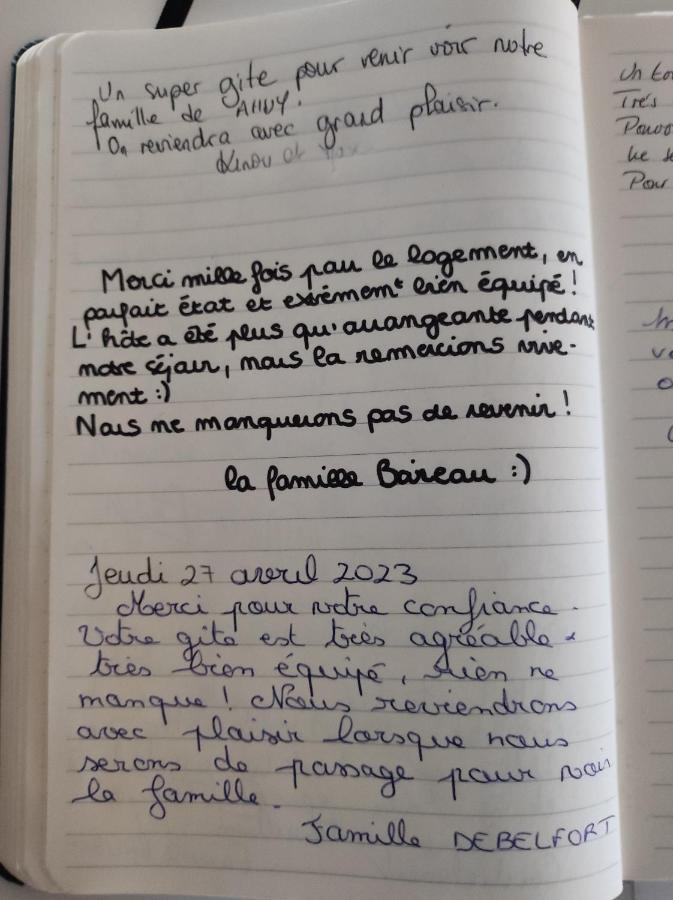 Un super gite pour venir voir notre
famille de AHUY.
On reviendra avec grand plaisir.
et
Merci mille fois pour le logement, en
parfait état et extrêmemt bien équipé !
L'hôte a été plus qu'arrangeante pendant
notre séjour, nous la remercions vive-
ment :)
Nous ne manquerons pas de revenir !
la famille Bareau :)
Jeudi 27 avril 2023
Merci pour votre confiance.
Votre gite est très agréable &
très bien équipé, rien ne
manque ! Nous reviendrons
avec plaisir lorsque nous
serons de passage pour voir
la famille.
Famille DEBELFORT
Très
Pour